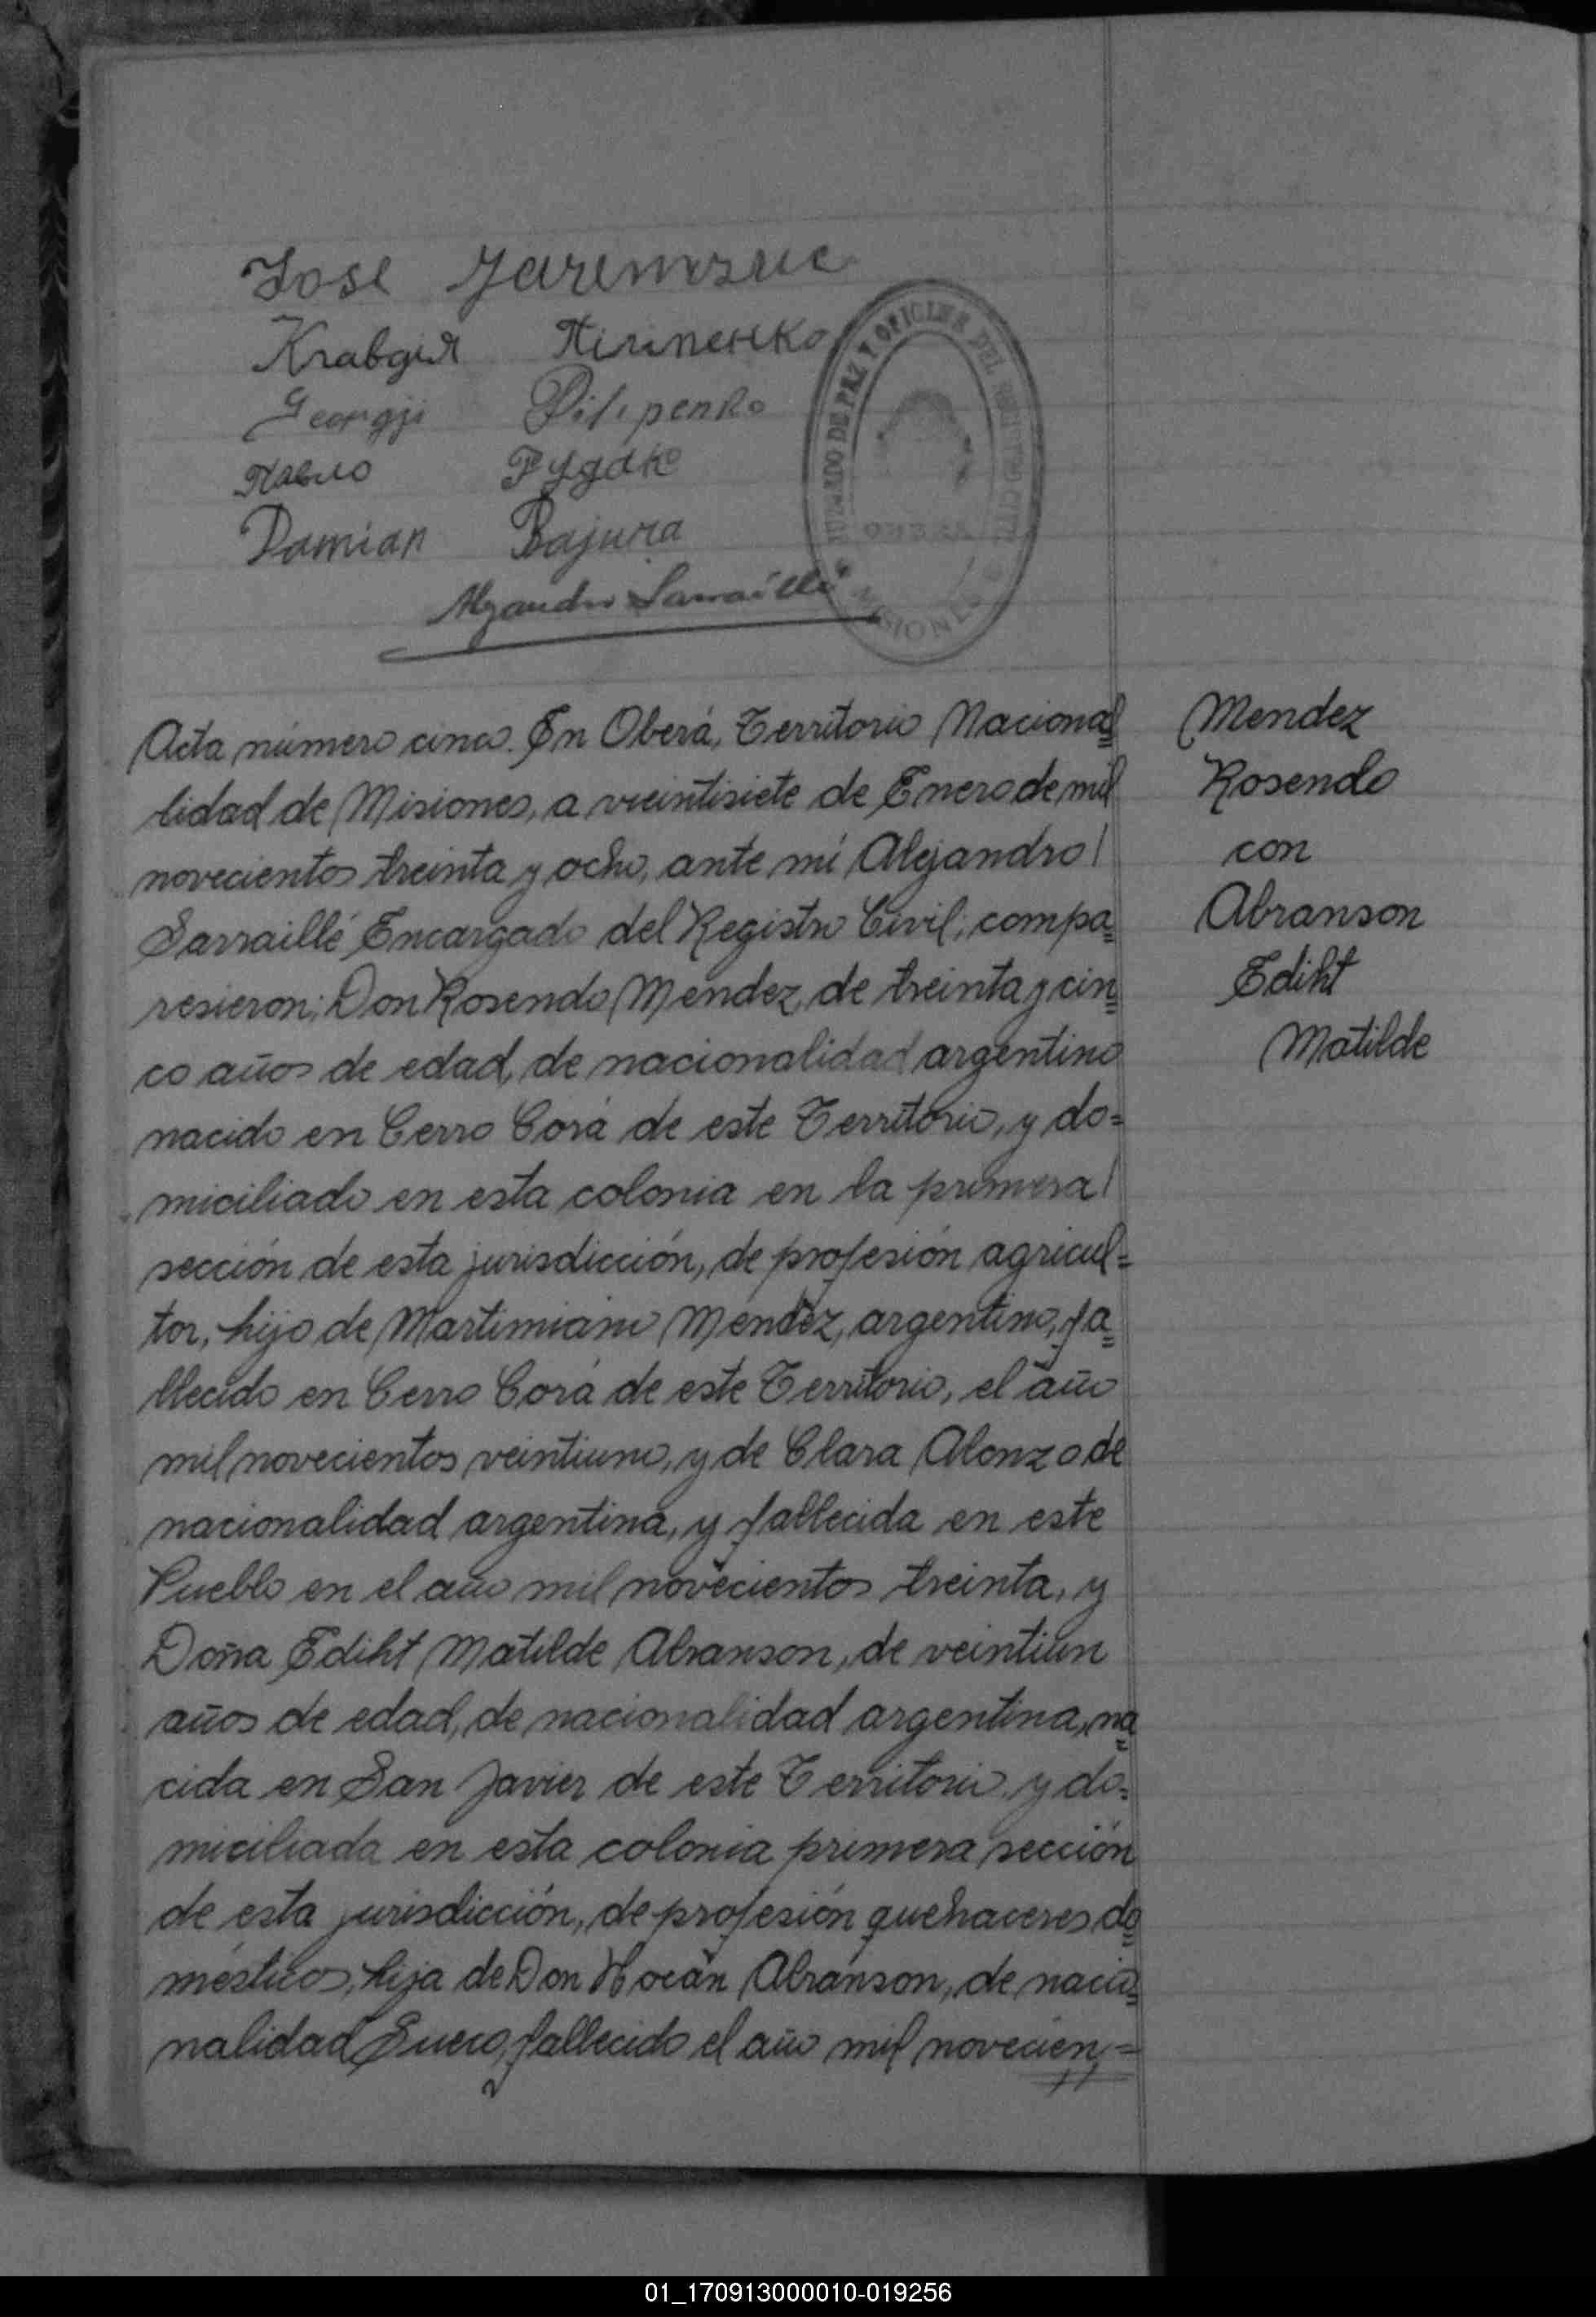 Jose
Клавдия Пилипенко
Georgji Pilipenko
Павло Рудко
Damian Bajura
Alejandro Sarraillé
JUZGADO DE PAZ Y OFICINA DEL REGISTRO CIVIL
OBERA
MISIONES
Acta número cinco. En Oberá, Territorio Naciona=
lidad de Misiones, a vieintisiete de Enero de mil
novecientos treinta y ocho, ante mí Alejandro/
Sarraillé Encargado del Registro Civil; compa=
resieron; Don Rosendo Mendez, de treinta y cin=
co años de edad, de nacionalidad argentino
nacido en Cerro Corá de este Territorio, y do=
miciliado en esta colonia en la primera/
sección de esta jurisdicción, de profesión agricul=
tor, hijo de Martimiano Méndez, argentino, fa=
llecido en Cerro Corá de este Territorio, el año
mil novecientos veintiuno, y de Clara Alonzo de
nacionalidad argentina, y fallecida en este
Pueblo en el año mil novecientos treinta, y
Doña Ediht Matilde Abranson, de veintiún
años de edad, de nacionalidad argentina, na=
cida en San Javier de este Territorio y do=
miciliada en esta colonia primera sección
de esta jurisdicción, de profesión quehaceres do=
mésticos, hija de Don Hocán Abranson, de nacio=
nalidad Sueco, fallecido el año mil novecien,=
Mendez
Rosendo
con
Abranson
Ediht
Matilde
01_170913000010-019256